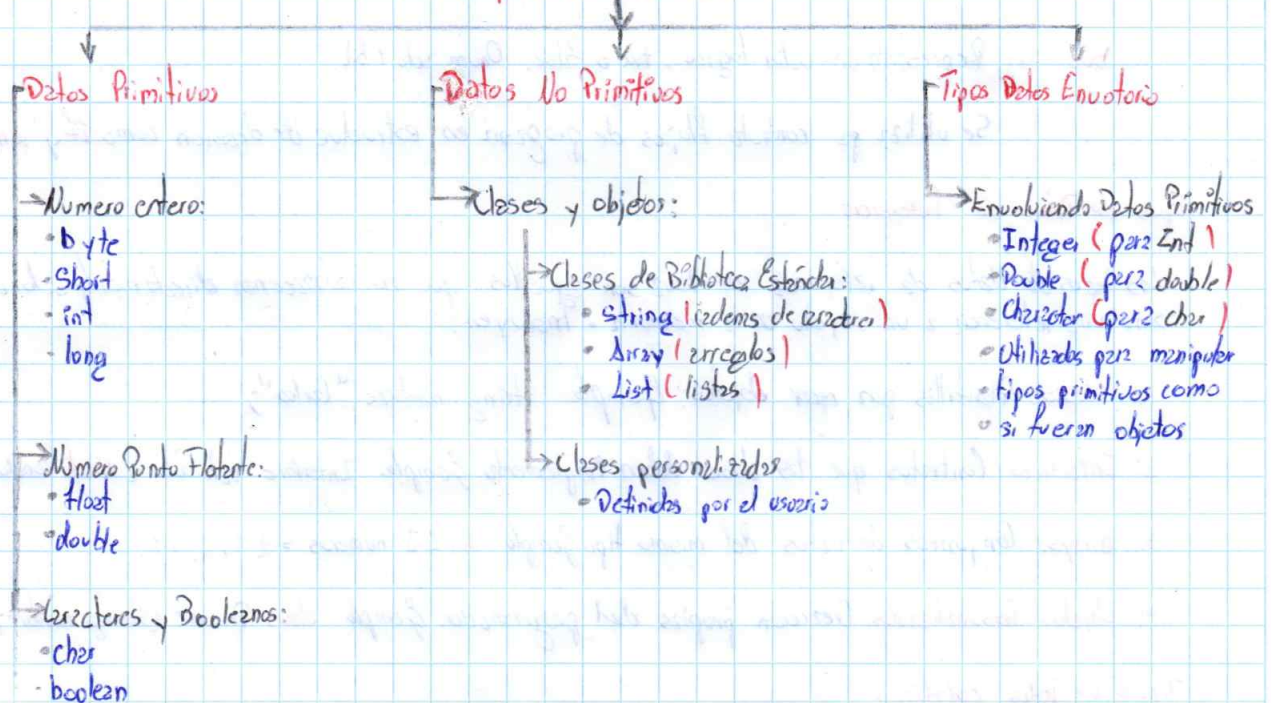 Datos Primitivos
Numero entero:
byte
Short
int
long
Numero Punto Flotante:
float
double
Caracteres y Booleanos:
char
boolean
Datos No Primitivos
Clases y objetos:
Clases de Biblioteca Estándar:
String (cadenas de caracteres)
Array (arreglos)
List (listas)
Clases personalizadas
Definidas por el usuario
Tipos Datos Envotorio
Envolviendo Datos Primitivos
Integer (para Int)
Double (para double)
Character (para char)
Utilizados para manipular
tipos primitivos como
si fueran objetos